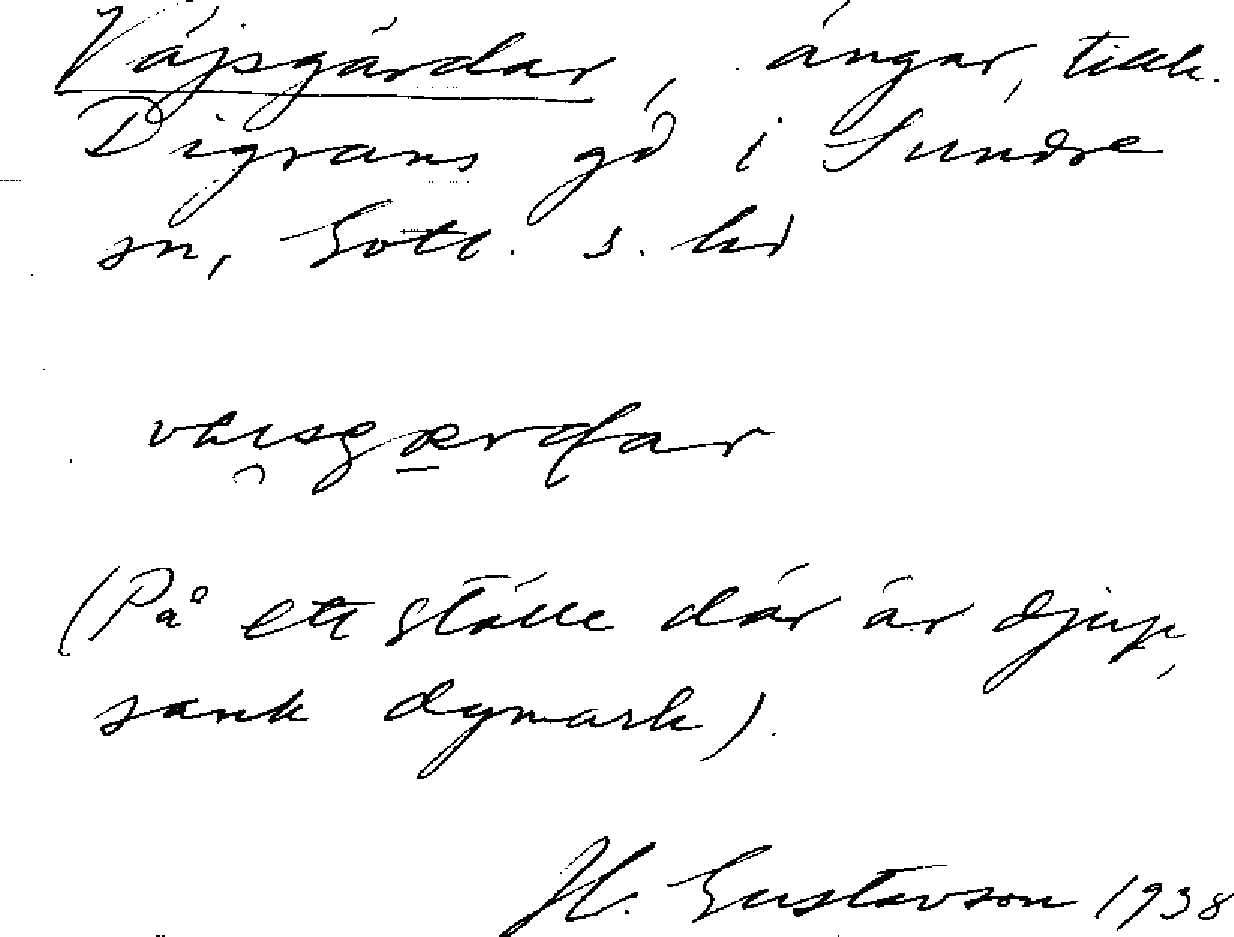 Väjsgärdar, ängar, tillh.
Digrans gd i Sundre
sn, Gotl. s. hd
(På ett ställe där är djup,
sank dymark).
H. Gustavson 1938